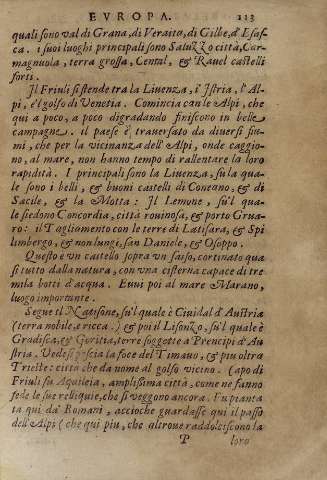 EVROPA. 113
quali sono val di Grana, di Veraita, di Gilbe, d'Esas-
ca. i suoi luoghi principali sono Saluzzo città, Car-
magnuola, terra grossa, Cental, & Rauel castelli
forti.
Il Friuli si stende tra la Liuenza, l'Istria, l'Al-
pi, e'l golfo di Venetia. Comincia con le Alpi, che
qui a poco, a poco digradando finiscono in belle
campagne. il paese è trauersato da diuersi fiu-
mi, che per la vicinanza dell'Alpi, onde caggio-
no, al mare, non hanno tempo di rallentare la loro
rapidità. I principali sono la Liuenza, su la qua-
le sono i belli, & buoni castelli di Conegno, & di
Sacile, & la Motta: Il Lemone, su'l qua-
le siedono Concordia, città rouinosa, & porto Grua-
ro: il Tagliamento con le terre di Latisara, & Spi
limbergo, & non lungi, san Daniele, & Osoppo.
Questo è vn castello sopra vn sasso, cortinato qua
si tutto dalla natura, con vna cisterna capace di tre
mila botti d'acqua. Euui poi al mare Marano,
luogo importante.
Segue il Natisone, su'l quale è Ciuidal d'Austria
(terra nobile, e ricca.) & poi il Lisonzo, su'l quale è
Gradisca, & Goritia, terre soggette a Prencipi d'Au
stria. Vedesi poscia la foce del Timauo, & piu oltra
Trieste: città che da nome al golfo vicino. Capo di
Friuli fu Aquileia, amplissima città, come ne fanno
fede le sue reliquie, che si veggono ancora. Fu pianta
ta qui da' Romani, accioche guardasse qui il passo
dell'Alpi (che qui piu, che altroue raddolciscono la
P loro